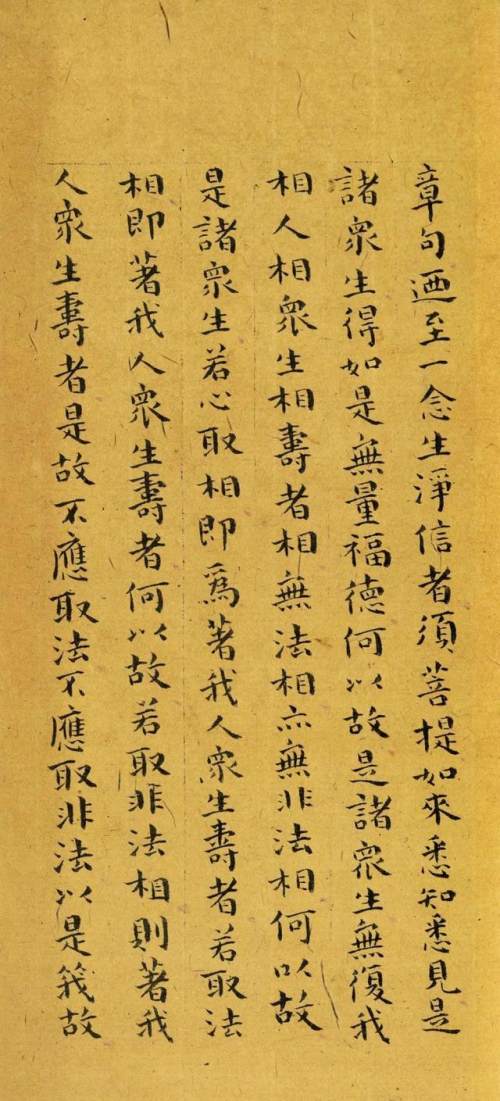 章句迺至一念生淨信者須菩提如來悉知悉見是
諸衆生得如是無量福德何以故是諸衆生無復我
相人相衆生相壽者相無法相亦無非法相何以故
是諸衆生若心取相即爲著我人衆生壽者若取法
相即著我人衆生壽者何以故若取非法相則著我
人衆生壽者是故不應取法不應取非法以是義故